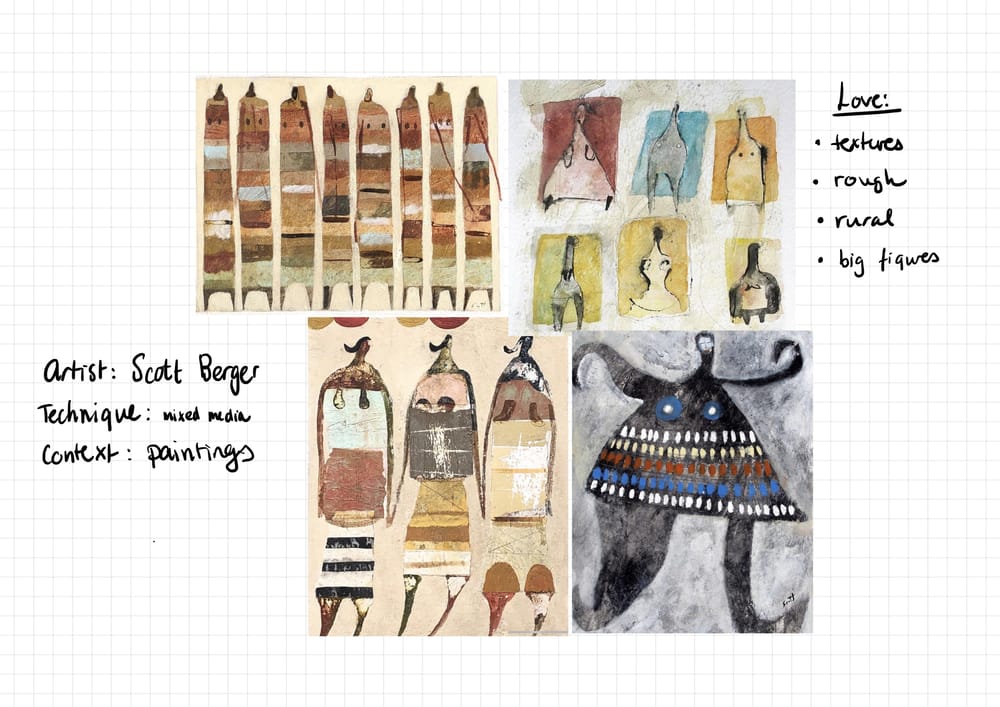 Love:
• textures
• rough
• rural
• big figures
Artist: Scott Berger
Technique: mixed media
Context: paintings
Scott